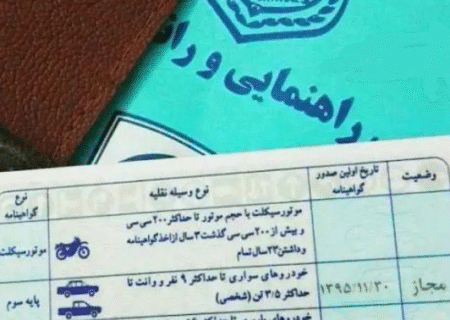 راهنمایی و را
وضعیت
تاریخ اولین صدور
گواهینامه
نوع وسیله نقلیه
نوع
گواهینامه
موتورسیکلت با حجم موتور تا حداکثر ۲۰۰ سی سی
و بیش از ۲۰۰ سی سی گذشت ۳ سال از اخذ گواهینامه
و داشتن ۲۳ سال تمام
موتورسیکلت
مجاز
۱۳۹۵/۱۱/۳۰
خودروهای سواری تا حداکثر ۹ نفر و وانت تا
حداکثر ۳/۵ تن (شخصی)
پایه سوم